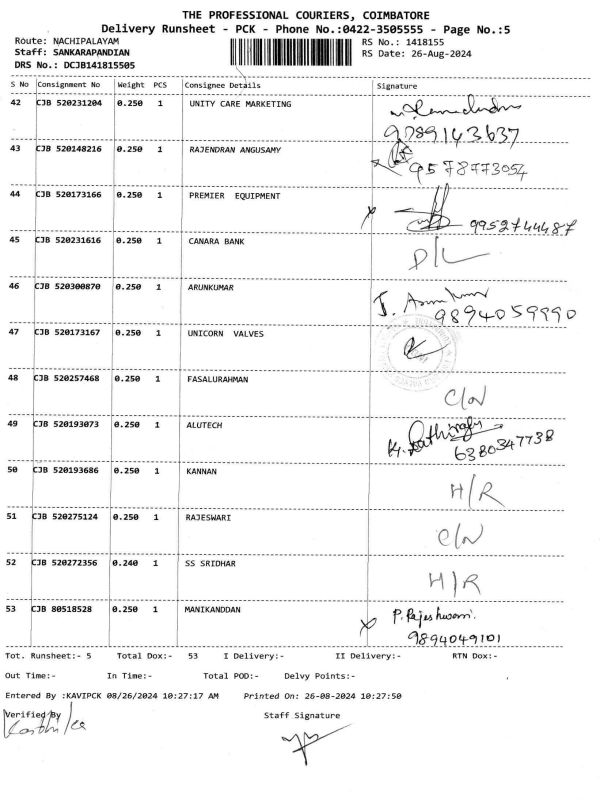 THE PROFESSIONAL COURIERS, COIMBATORE
Delivery Runsheet - PCK - Phone No.:0422-3505555 - Page No.:5
Route: NACHIPALAYAM RS No.: 1418155
Staff: SANKARAPANDIAN RS Date: 26-Aug-2024
DRS No.: DCJB141815505
S No Consignment No Weight PCS Consignee Details Signature
42 CJB 520231204 0.250 1 UNITY CARE MARKETING
9789143637
43 CJB 520148216 0.250 1 RAJENDRAN ANGUSAMY
9578773054
44 CJB 520173166 0.250 1 PREMIER EQUIPMENT
9952744487
45 CJB 520231616 0.250 1 CANARA BANK D/L
46 CJB 520300870 0.250 1 ARUNKUMAR
9894059990
47 CJB 520173167 0.250 1 UNICORN VALVES
48 CJB 520257468 0.250 1 FASALURAHMAN
C/N
49 CJB 520193073 0.250 1 ALUTECH
6380347738
50 CJB 520193686 0.250 1 KANNAN
H/R
51 CJB 520275124 0.250 1 RAJESWARI
C/N
52 CJB 520272356 0.240 1 SS SRIDHAR
H/R
53 CJB 80518528 0.250 1 MANIKANDDAN P. Rajeshwari.
9894049101
Tot. Runsheet:- 5 Total Dox:- 53 I Delivery:- II Delivery:- RTN Dox:-
Out Time:- In Time:- Total POD:- Delvy Points:-
Entered By :KAVIPCK 08/26/2024 10:27:17 AM Printed On: 26-08-2024 10:27:50
Verified By Staff Signature